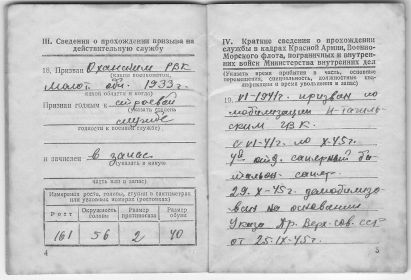 III. Сведения о прохождении призыва на
действительную службу
18. Призван Оханским РВК
(каким военкоматом,
Молот. обл. 1933 г.
какой области и когда)
Признан годным к строевой
(указать степень
службе
годности к военной службе)
и зачислен в запас
(указать в какую
часть или в запас)
Измерения роста, головы, ступни в сантиметрах
или условных номерах (ростовках)
Рост
Окружность головы
Размер противогаза
Размер обуви
161 56 2 40
4
IV. Краткие сведения о прохождении
службы в кадрах Красной Армии, Военно-
Морского флота, пограничных и внутрен-
них войск Министерства внутренних дел
(Указать время прибытия в часть, основное
перемещение, специальность, должностное
и время увольнения в запас)
19. VI-1941г. призван по
мобилизации Н-Тагиль-
ским ГВК.
с VI-41г. по X-45г.
саперный ба-
тальон – сапер.
29.X-45г. демобилизо-
ван на основании
Указа Пр. Верх. сов. ССР
от 25.IX-45г.
5